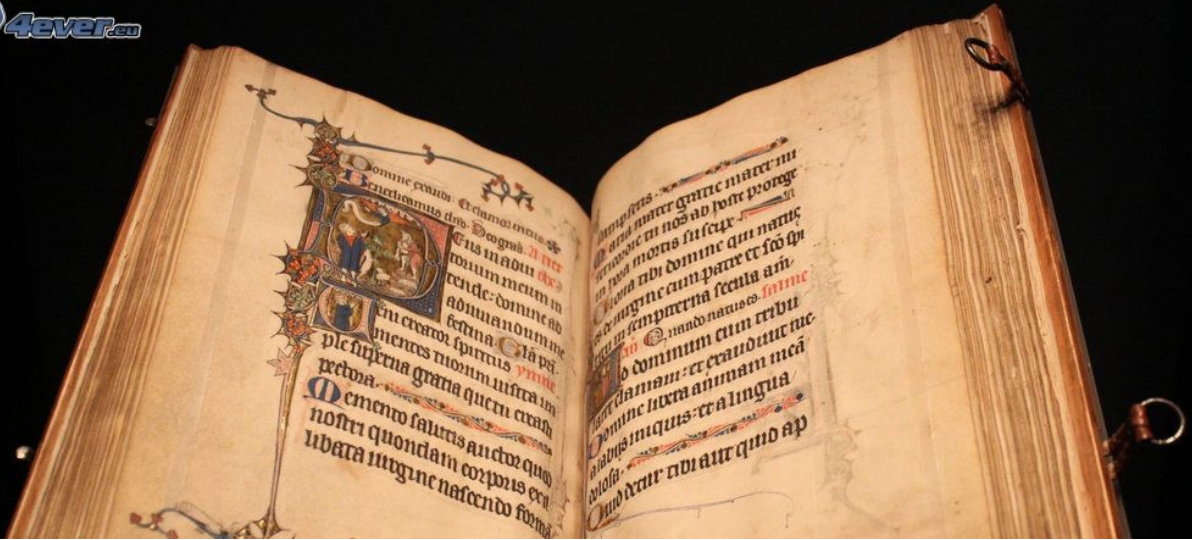 4ever.eu
Domine exaudi. Et clamor meus
Benedicamus dno. Deo gras. A tierce
Eus in adiu
torium meum in
tende: domine ad
adiuuandum me
festina. Gla pa
Ueni creator spiritus ymne
mentes tuorum uisita im
ple superna gratia que tu creasti
pectora.
Memento salutis auctor quod
nostri quondam corporis ex
libata uirgine nascendo formã
sumpseris.
Maria mater gratie mater mi
sericordie tu nos ab hoste protege
in hora mortis suscipe
Gloria tibi domine qui natus
es de uirgine cum patre et sco spi
ritu in sempiterna secula am.
añ Quando natus es. salme
Ad dominum cum tribu
larer clamaui: et exaudiuit me.
Domine libera animam meã
a labijs iniquis: et a lingua
dolosa.
Quid detur tibi aut quid ap